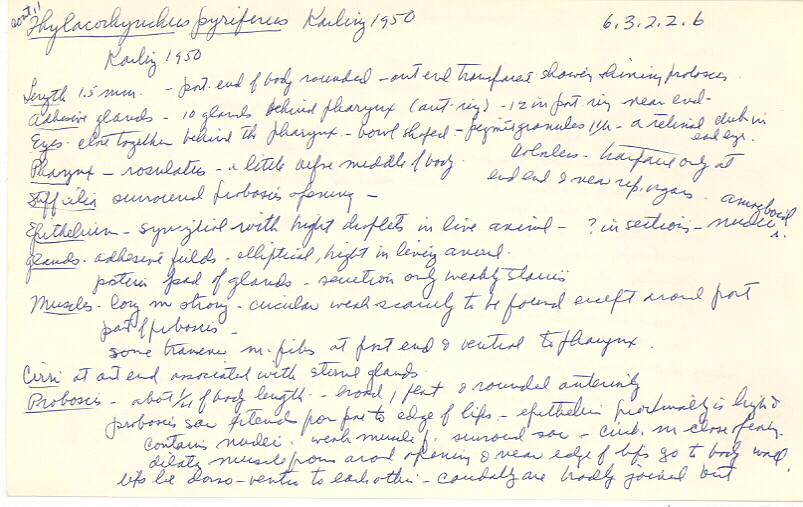 cont.
Thylacorhynchus pyriferus Karling 1950 6.3.2.2.6
Karling 1950
Length 1.5 mm - post. end of body rounded - ant end transparent showing shining proboscis
Adhesive glands - 10 glands behind pharynx (ant. ring) - 12 in post ring near end -
Eyes - close together behind the pharynx - bowl shaped - pigment granules 1μ - a retinal club in each eye.
Pharynx - rosulatus - a little before middle of body. Colorless - transparent only at
end end & near rep. organs.
Stiff cilia surround proboscis opening -
Epithelium - syncytial with bright droplets in live animal - ? in sections - amoeboid nuclei.
glands - adhesive fields - elliptical, bright in living animal.
posterior pad of glands - secretion only weakly stains
Muscles - long m strong - circular weak scarcely to be found except around post
part of proboscis -
some transverse m. fibs at post end & ventral to pharynx.
Cirri at ant end associated with glands
Proboscis - about 1/4 of body length - broad, & rounded anteriorly
proboscis sac extend to edge of lips - epithelium proximally is high &
contains nuclei. weak muscle surround sac - circ. m close opening.
dilator muscles from around opening & near edge of lips go to body wall.
lips lie dorso-ventral to each other - caudally are broadly joined but